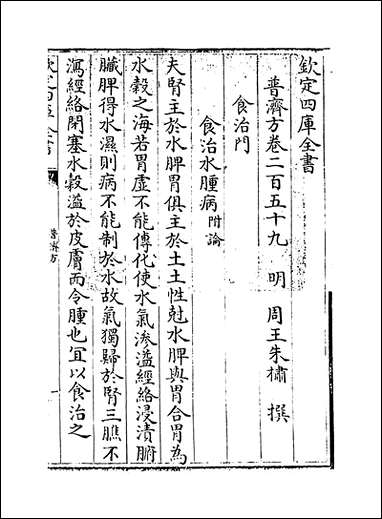 欽定四庫全書
普濟方卷二百五十九　明　周王朱橚　撰
食治門
食治水腫病附論
夫腎主於水脾胃俱主於土土性尅水脾與胃合胃為
水穀之海若胃虛不能傳化使水氣滲溢經絡浸漬腑
臟脾得水濕則病不能制於水故氣獨歸於腎三膲不
瀉經絡閉塞水穀溢於皮膚而令腫也宜以食治之
普濟方
一